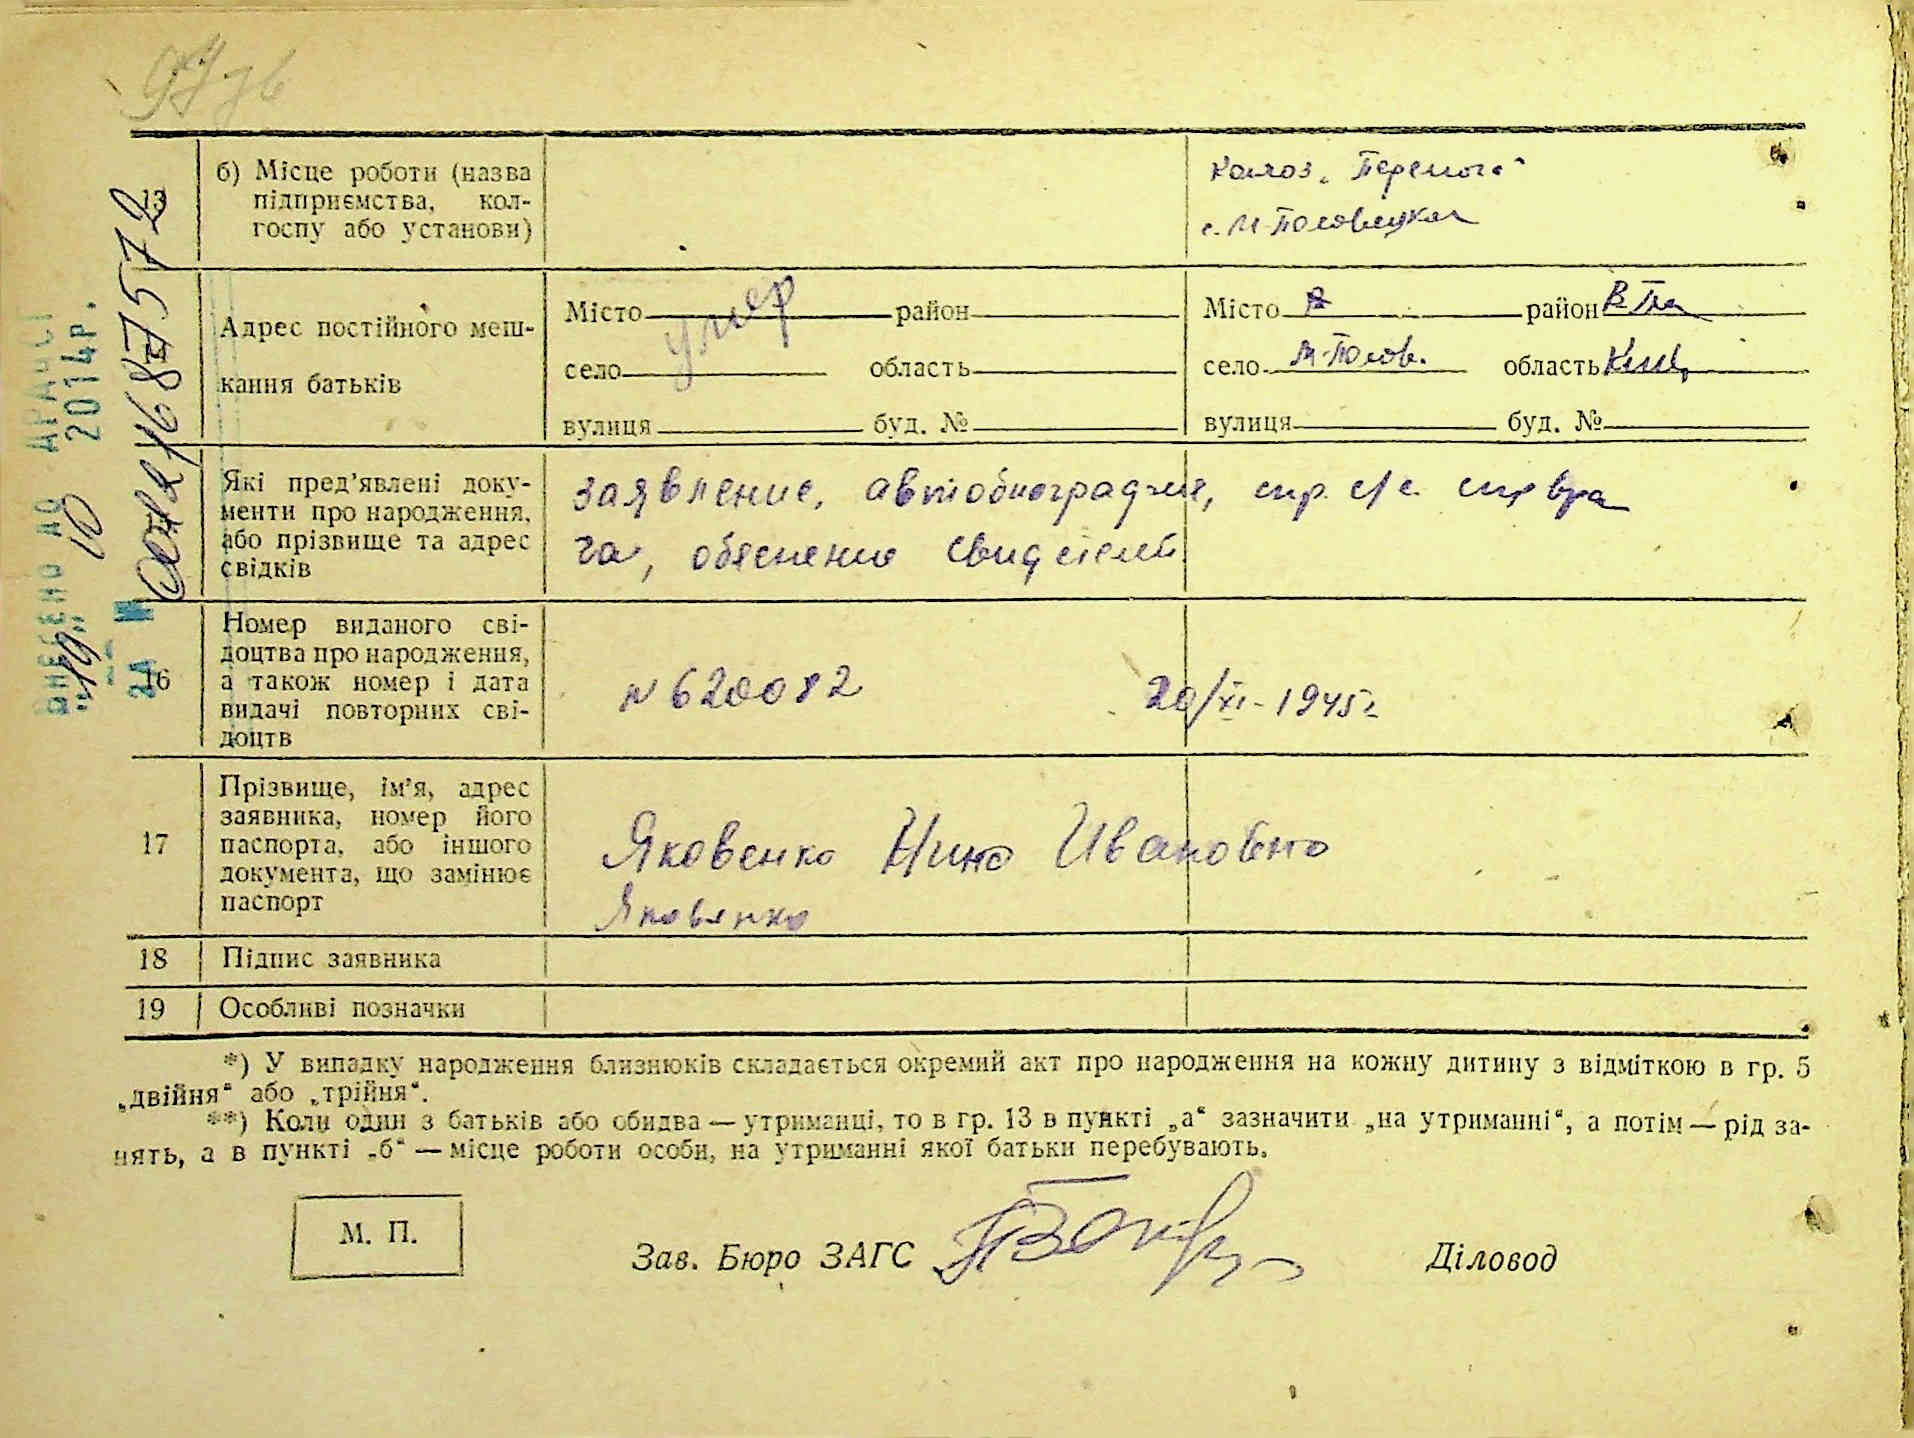 13
б) Місце роботи (назва
підприємства, кол-
госпу або установи)
колхоз „Перемога“
с. М-Половецкая
Адрес постійного меш-
кання батьків
умер
Місто район
село область
вулиця буд. №
Місто район
село М-Полов. область Киев,
вулиця буд. №
Які пред’явлені доку-
менти про народження,
або прізвище та адрес
свідків
заявление, автобиография, спр. с/с. спр вра
ча, обяснение свидетелей
16
Номер виданого сві-
доцтва про народження,
а також номер і дата
видачі повторних сві-
доцтв
N 620082 20/XI-1945г
17
Прізвище, ім’я, адрес
заявника, номер його
паспорта, або іншого
документа, що замінює
паспорт
Яковенко Нина Ивановна
Яковенко
18 Підпис заявника
19 Особливі позначки
*) У випадку народження близнюків складається окремий акт про народження на кожну дитину з відміткою в гр. 5
„двійня“ або „трійня“.
**) Коли один з батьків або обидва — утриманці, то в гр. 13 в пункті „а“ зазначити „на утриманні“, а потім — рід за-
нять, а в пункті „б“ — місце роботи особи, на утриманні якої батьки перебувають.
М. П.
Зав. Бюро ЗАГС
Діловод
ВНЕСЕНО ДО ДРАЦСГ
„19„ 10 2014р.
ЗА №